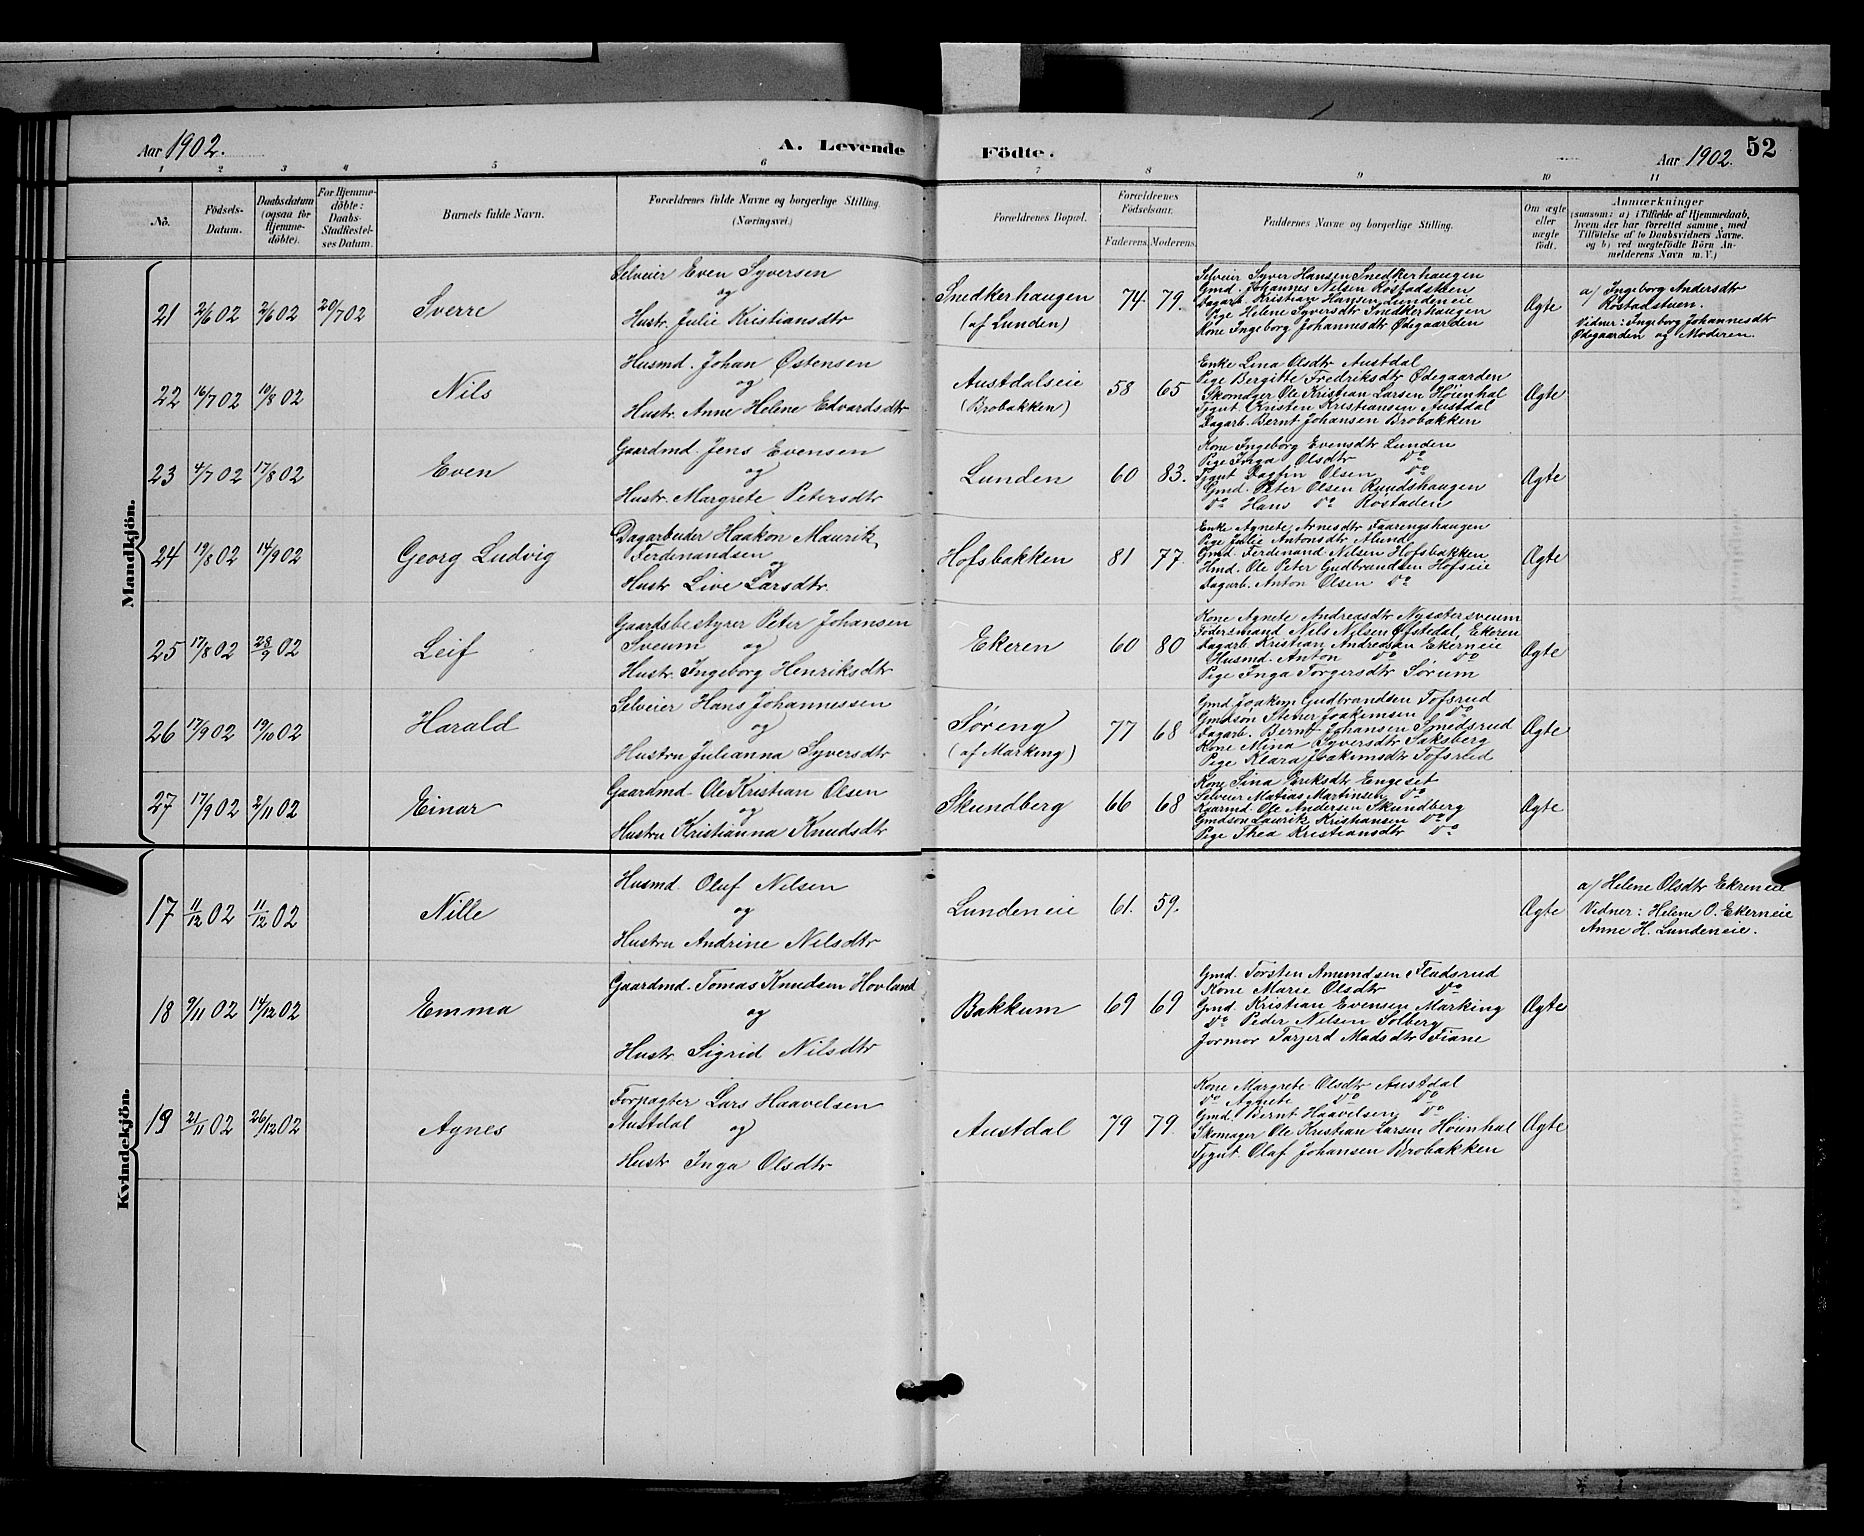 Aar 1902. A. Levende Födte. Aar 1902. 52
1 2 3 4 5 6 7 8 9 10 11
No.
Födsels-Datum.
Daabsdatum (ogsaa for Hjemmedöbte).
For Hjemmedöbte: Daabs-Stadfæstelses Datum.
Barnets fulde Navn.
Forældrenes fulde Navne og borgerlige Stilling. (Næringsvei.)
Forældrenes Bopæl.
Forældrenes Födselsaar.
Faderens. Moderens.
Faddernes Navne og borgerlige Stilling.
Om ægte eller uægte födt.
Anmærkninger
(saasom: a) i Tilfælde af Hjemmedaab,
hvem der har forrettet samme, med
Tilföielse af to Daabsvidners Navne.
og b) ved uægtefödte Börn An-
melderens Navn m. V.)
Mandkjön.
21 2/6 02 2/6 02 20/7 02 Sverre
Selveier Even Syversen
og
Hustr. Julie Kristiansdtr
Snedkerhaugen
(af Lunden)
74. 79.
Selveier Syver Hansen Snedkerhaugen
Gmd. Johannes Nilsen Rostadstuen
Dagarb. Kristian Hansen Lundeneie
Pige Helene Syversdtr Snedkerhaugen
Kone Ingeborg Johannesdtr Ødegaarden
Ægte
a) Ingeborg Andersdtr
Rostadstuen.
Vidner: Ingeborg Johannesdtr
Ødegaarden og Moderen.
22 16/7 02 10/8 02 Nils
Husmd. Johan Østensen
og
Hustr. Anne Helene Edvardsdtr
Austdalseie
(Brobakken)
58 65
Enke Lina Olsdtr Austdal
Pige Bergitte Fredriksdtr Ødegaarden
Skomager Ole Kristian Larsen Høinhal
Tjgut. Kristen Kristiansen Austdal
Dagarb. Bernt Johansen Brobakken
Ægte
23 4/7 02 17/8 02 Even
Gaardmd. Jens Evensen
og
Hustr. Margrete Petersdtr
Lunden
60 83.
Kone Ingeborg Evensdtr Lunden
Pige Inga Olsdtr Do
Tjgut. Dagfin Olsen Do
Gmd. Peter Olsen Rundshaugen
Do Hans Do Rostaden
Ægte
24 19/8 02 14/9 02 Georg Ludvig
Dagarbeider Haakon Maurik
Ferdinandsen
og
Hustr. Live Larsdtr.
Hofsbakken
81 77
Enke Agnete Arnesdtr Faarengshaugen
Pige Julie Antonsdtr Alund
Gmd. Ferdinand Nilsen Hofsbakken
Hmd. Ole Peter Gudbrandsen Hofseie
Dagarb. Anton Olsen Do
Ægte
25 17/8 02 28/9 02 Leif
Gaardsbestyrer Peter Johansen
Sveum og
Hustr. Ingeborg Henriksdtr
Ekeren
60 80
Kone Agnete Andreasdtr Nysætersveum
Føderaadsmand Nils Nilsen Øfstedal, Ekeren
Dagarb. Kristian Andreasen Ekerneie
Husmd. Anton Do Do
Pige Inga Torgersdtr Sørum
Ægte
26 17/9 02 19/10 02 Harald
Selveier Hans Johannessen
og
Hustru Julianna Syversdtr
Søreng
(af Marking)
77 68
Gmd. Joakim Gudbrandsen Tofsrud
Gmdsøn Stener Joakimsen Do
Dagarb. Bernt Johansen Smedsrud
Kone Mina Syversdtr Saksberg
Pige Klara Joakimsdtr Tofsrud
Ægte
27 17/9 02 2/11 02 Einar
Gaardmd. Ole Kristian Olsen
og
Hustru Kristianna Knudsdtr
Skundberg
66 68
Kone Sina Eriksdtr Engeset
Selveier Matias Martinsen Do
Kaarmd. Ole Andersen Skundberg
Gmdsøn Laurits Kristiansen Do
Pige Thea Kristiansdtr Do
Ægte
Kvindekjön.
17 11/12 02 11/12 02 Nille
Husmd. Oluf Nilsen
og
Hustru Andrine Nilsdtr
Lundeneie
61. 59.
Ægte
a) Helene Olsdtr Ekreneie
Vidner: Helene O. Ekerneie
Anne H. Lundeneie.
18 9/11 02 14/12 02 Emma
Gaardmd. Tomas Knudsen Hovland
og
Hustr Sigrid Nilsdtr
Bakkum
69 69
Gmd. Torsten Amundsen Fladsrud
Kone Marie Olsdtr Do
Gmd. Kristian Evensen Marking
Do Peder Nilsen Solberg
Jormor Tarjerd Madsdtr Fiane
Ægte
19 21/11 02 26/12 02 Agnes
Forpagter Lars Haavelsen
Austdal og
Hustr Inga Olsdtr
Austdal
79 79.
Kone Margrete Olsdtr Austdal
Do Agnete Do Do
Gmd. Bernt Haavelsen Do
Skomager Ole Kristian Larsen Høinhal
Tjgut. Olaf Johansen Brobakken
Ægte